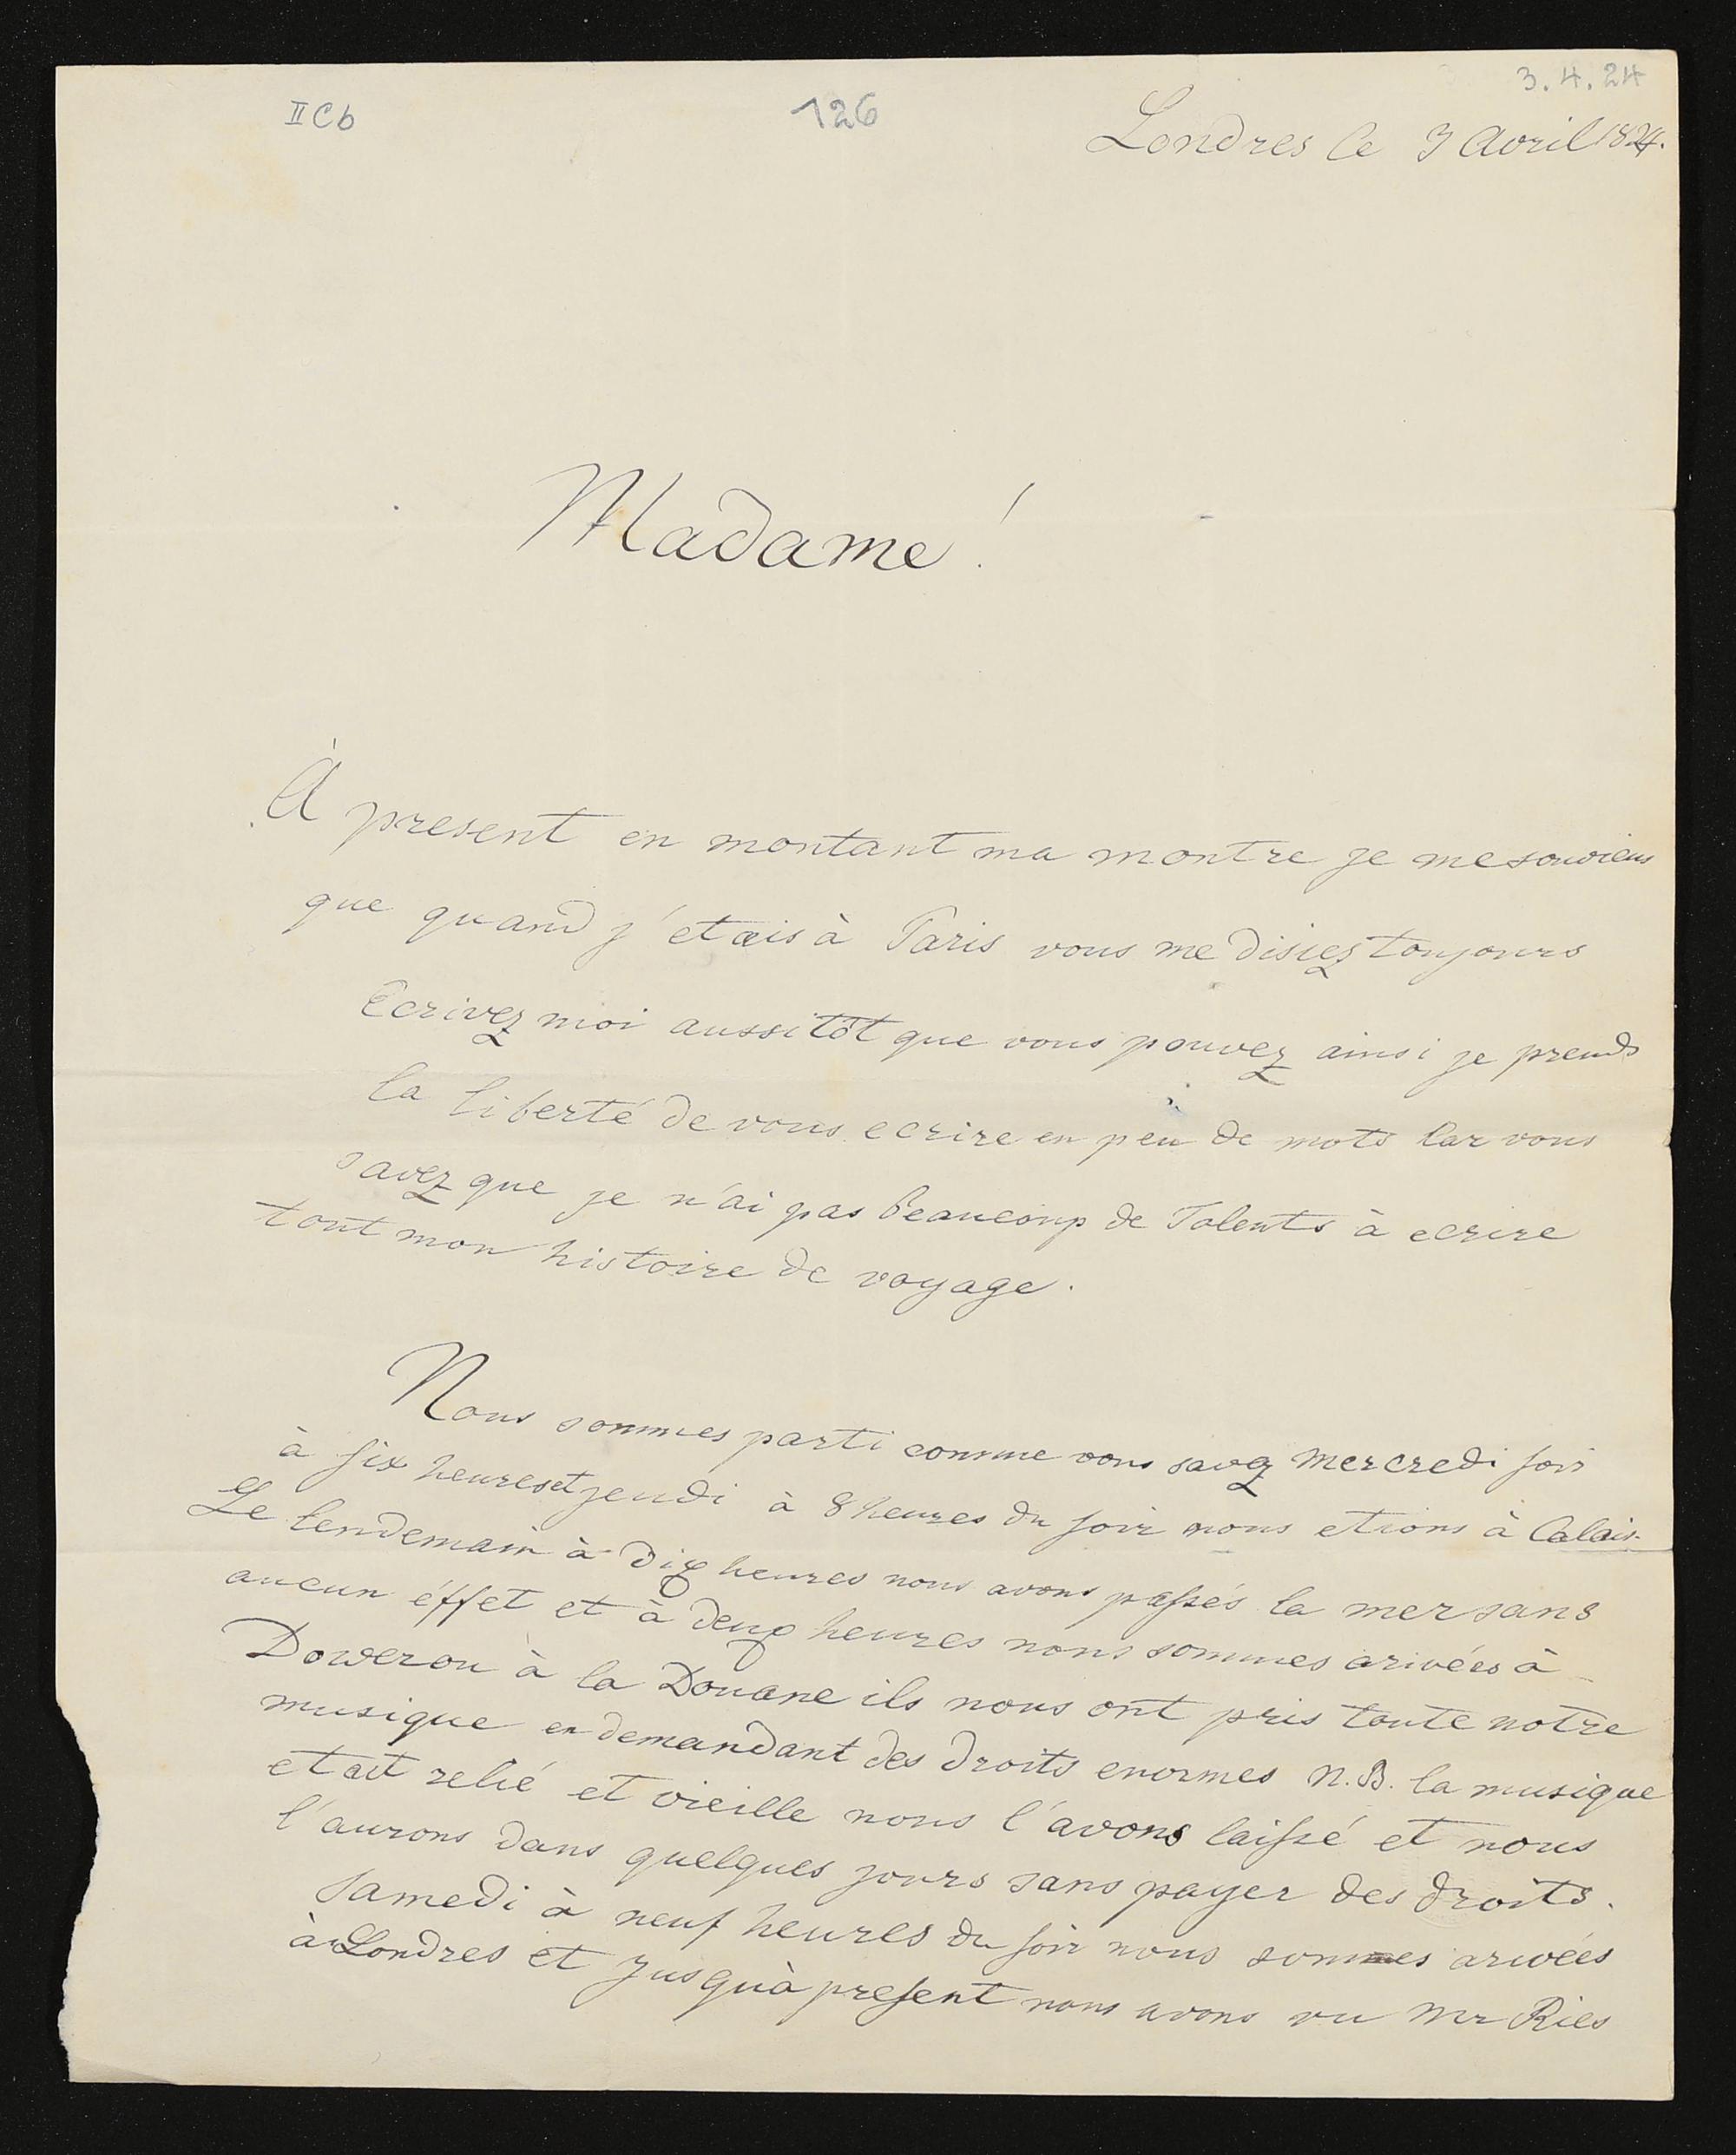 3. 4. 24
II C b
126
Londres le 3 Avril 1824.
Madame!
À present en montant ma montre je me souviens
que quand j'etais à Paris vous me disiez toujours
Ecrivez moi aussitôt que vous pouvez ainsi je prends
la liberté de vous ecrire en peu de mots Car vous
savez que je n'ai pas beaucoup de Talents à ecrire
tout mon histoire de voyage.
Nous sommes parti comme vous savez Mercredi soir
à six heures et jeudi à 8 heures du soir nous etions à Calais.
Le lendemain à dix heures nous avons passés la mer sans
aucun éffet et à deux heures nous sommes arivées à
Dower ou à la Douane ils nous ont pris toute notre
musique en demandant des droits enormes N.B. la musique
etait relié et vieille nous l'avons laissé et nous
l'aurons dans quelques jours sans payer des droits.
Samedi à neuf heures du soir nous sommes arivées
à Londres et jusqu'à present nous avons vu Mr Ries